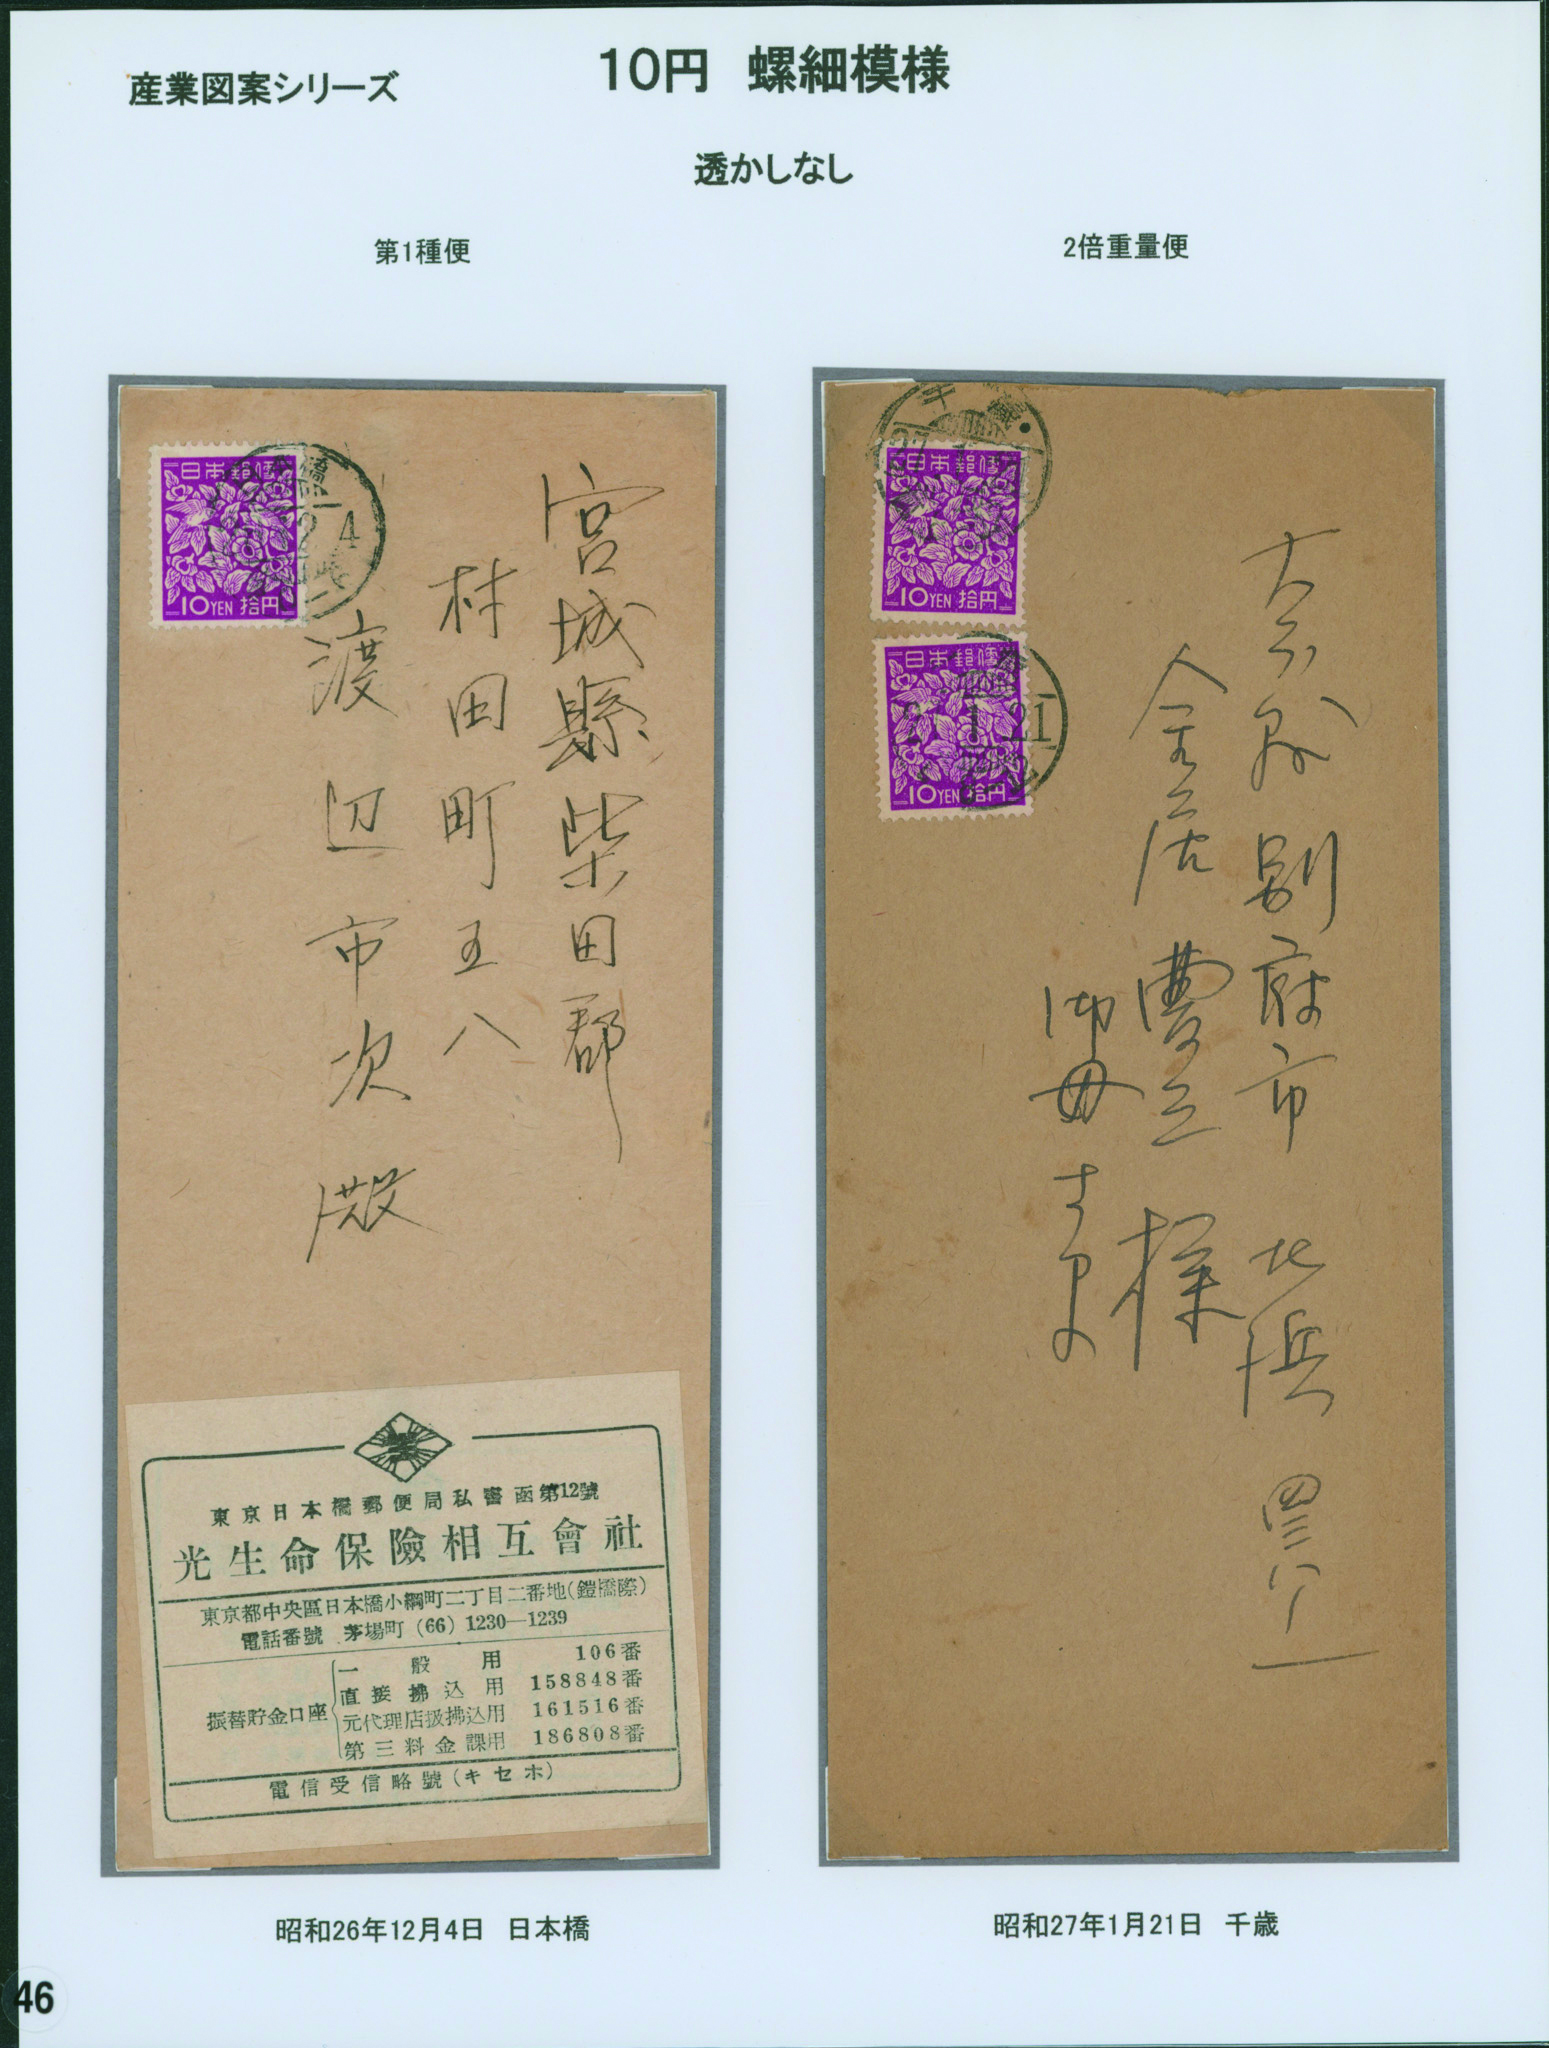 産業図案シリーズ
10円 螺細模様
透かしなし
第1種便
2倍重量便
日本郵便
10YEN 拾円
2 4
宮城縣柴田郡
村田町五八
渡辺市次殿
東京日本橋郵便局私書函第12號
光生命保險相互會社
東京都中央區日本橋小網町二丁目二番地(鎧橋際)
電話番號 茅場町 (66) 1230—1239
振替貯金口座
一般用 106番
直接拂込用 158848番
元代理店扱拂込用 161516番
第三料金課用 186808番
電信受信略號(キセホ)
日本郵便
10YEN 拾円
日本郵便
10YEN 拾円
1 21
別府市 北浜
様
昭和26年12月4日 日本橋
昭和27年1月21日 千歳
46